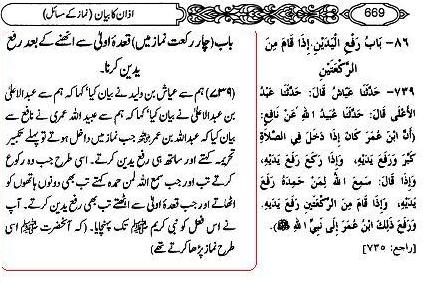 669
اذان کا بیان (نماز کے مسائل)
٨٦- بَابُ رَفْعِ الْيَدَيْنِ إِذَا قَامَ مِنَ
الرَّكْعَتَيْنِ
٧٣٩- حَدَّثَنَا عَيَّاشٌ قَالَ: حَدَّثَنَا عَبْدُ
الأَعْلَى قَالَ: حَدَّثَنَا عُبَيْدُ اللهِ عَنْ نَافِعٍ:
(أَنَّ ابْنَ عُمَرَ كَانَ إِذَا دَخَلَ فِي الصَّلَاةِ
كَبَّرَ وَرَفَعَ يَدَيْهِ، وَإِذَا رَكَعَ رَفَعَ يَدَيْهِ،
وَإِذَا قَالَ: سَمِعَ اللهُ لِمَنْ حَمِدَهُ رَفَعَ
يَدَيْهِ، وَإِذَا قَامَ مِنَ الرَّكْعَتَيْنِ رَفَعَ يَدَيْهِ.
وَرَفَعَ ذَلِكَ ابْنُ عُمَرَ إِلَى نَبِيِّ اللهِ ﷺ).
[راجع: ٧٣٥]
باب (چار رکعت نماز میں) قعدہ اولیٰ سے اٹھنے کے بعد رفع
یدین کرنا۔
(۷۳۹) ہم سے عیاش بن ولید نے بیان کیا' کہا کہ ہم سے عبدالاعلیٰ
بن عبدالاعلیٰ نے بیان کیا' کہا کہ ہم سے عبید اللہ عمری نے نافع سے
بیان کیا کہ عبداللہ بن عمر جب نماز میں داخل ہوتے تو پہلے تکبیر
تحریمہ کہتے اور ساتھ ہی رفع یدین کرتے۔ اسی طرح جب وہ رکوع
کرتے تب اور جب سمع اللہ لمن حمدہ کہتے تب بھی دونوں ہاتھوں کو
اٹھاتے اور جب قعدہ اولیٰ سے اٹھتے تب بھی رفع یدین کرتے۔ آپ
نے اس فعل کو نبی کریم ﷺ تک پہنچایا۔ (کہ آنحضرت ﷺ اسی
طرح نماز پڑھا کرتے تھے)